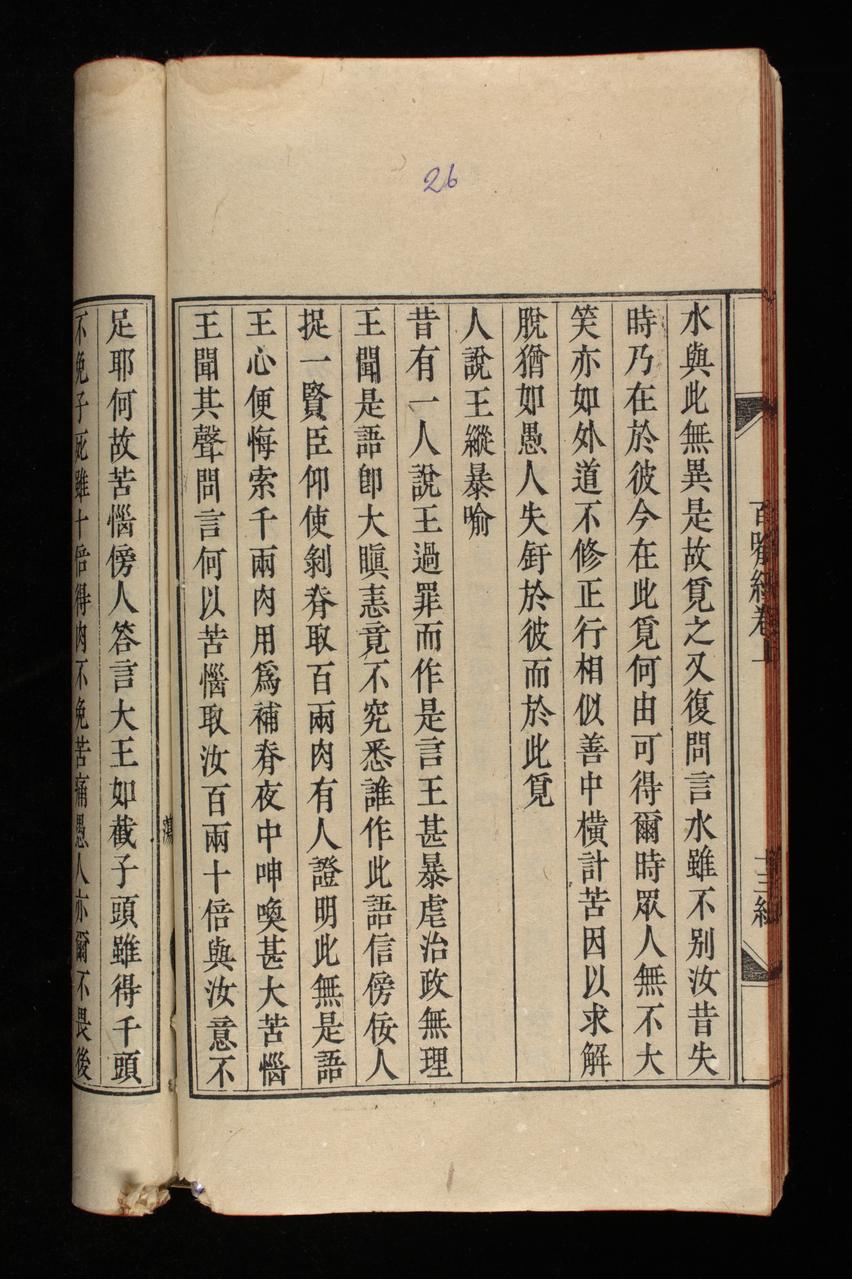 26
百喻經卷上
十三 經
水與此無異是故覓之又復問言水雖不別汝昔失
時乃在於彼今在此覓何由可得爾時眾人無不大
笑亦如外道不修正行相似善中橫計苦因以求解
脫猶如愚人失釪於彼而於此覓
人說王縱暴喻
昔有一人說王過罪而作是言王甚暴虐治政無理
王聞是語卽大瞋恚竟不究悉誰作此語信傍佞人
捉一賢臣仰使剝脊取百兩肉有人證明此無是語
王心便悔索千兩肉用爲補脊夜中呻喚甚大苦惱
王聞其聲問言何以苦惱取汝百兩十倍與汝意不
足耶何故苦惱傍人答言大王如截子頭雖得千頭
不免子死雖十倍得肉不免苦痛愚人亦爾不畏後